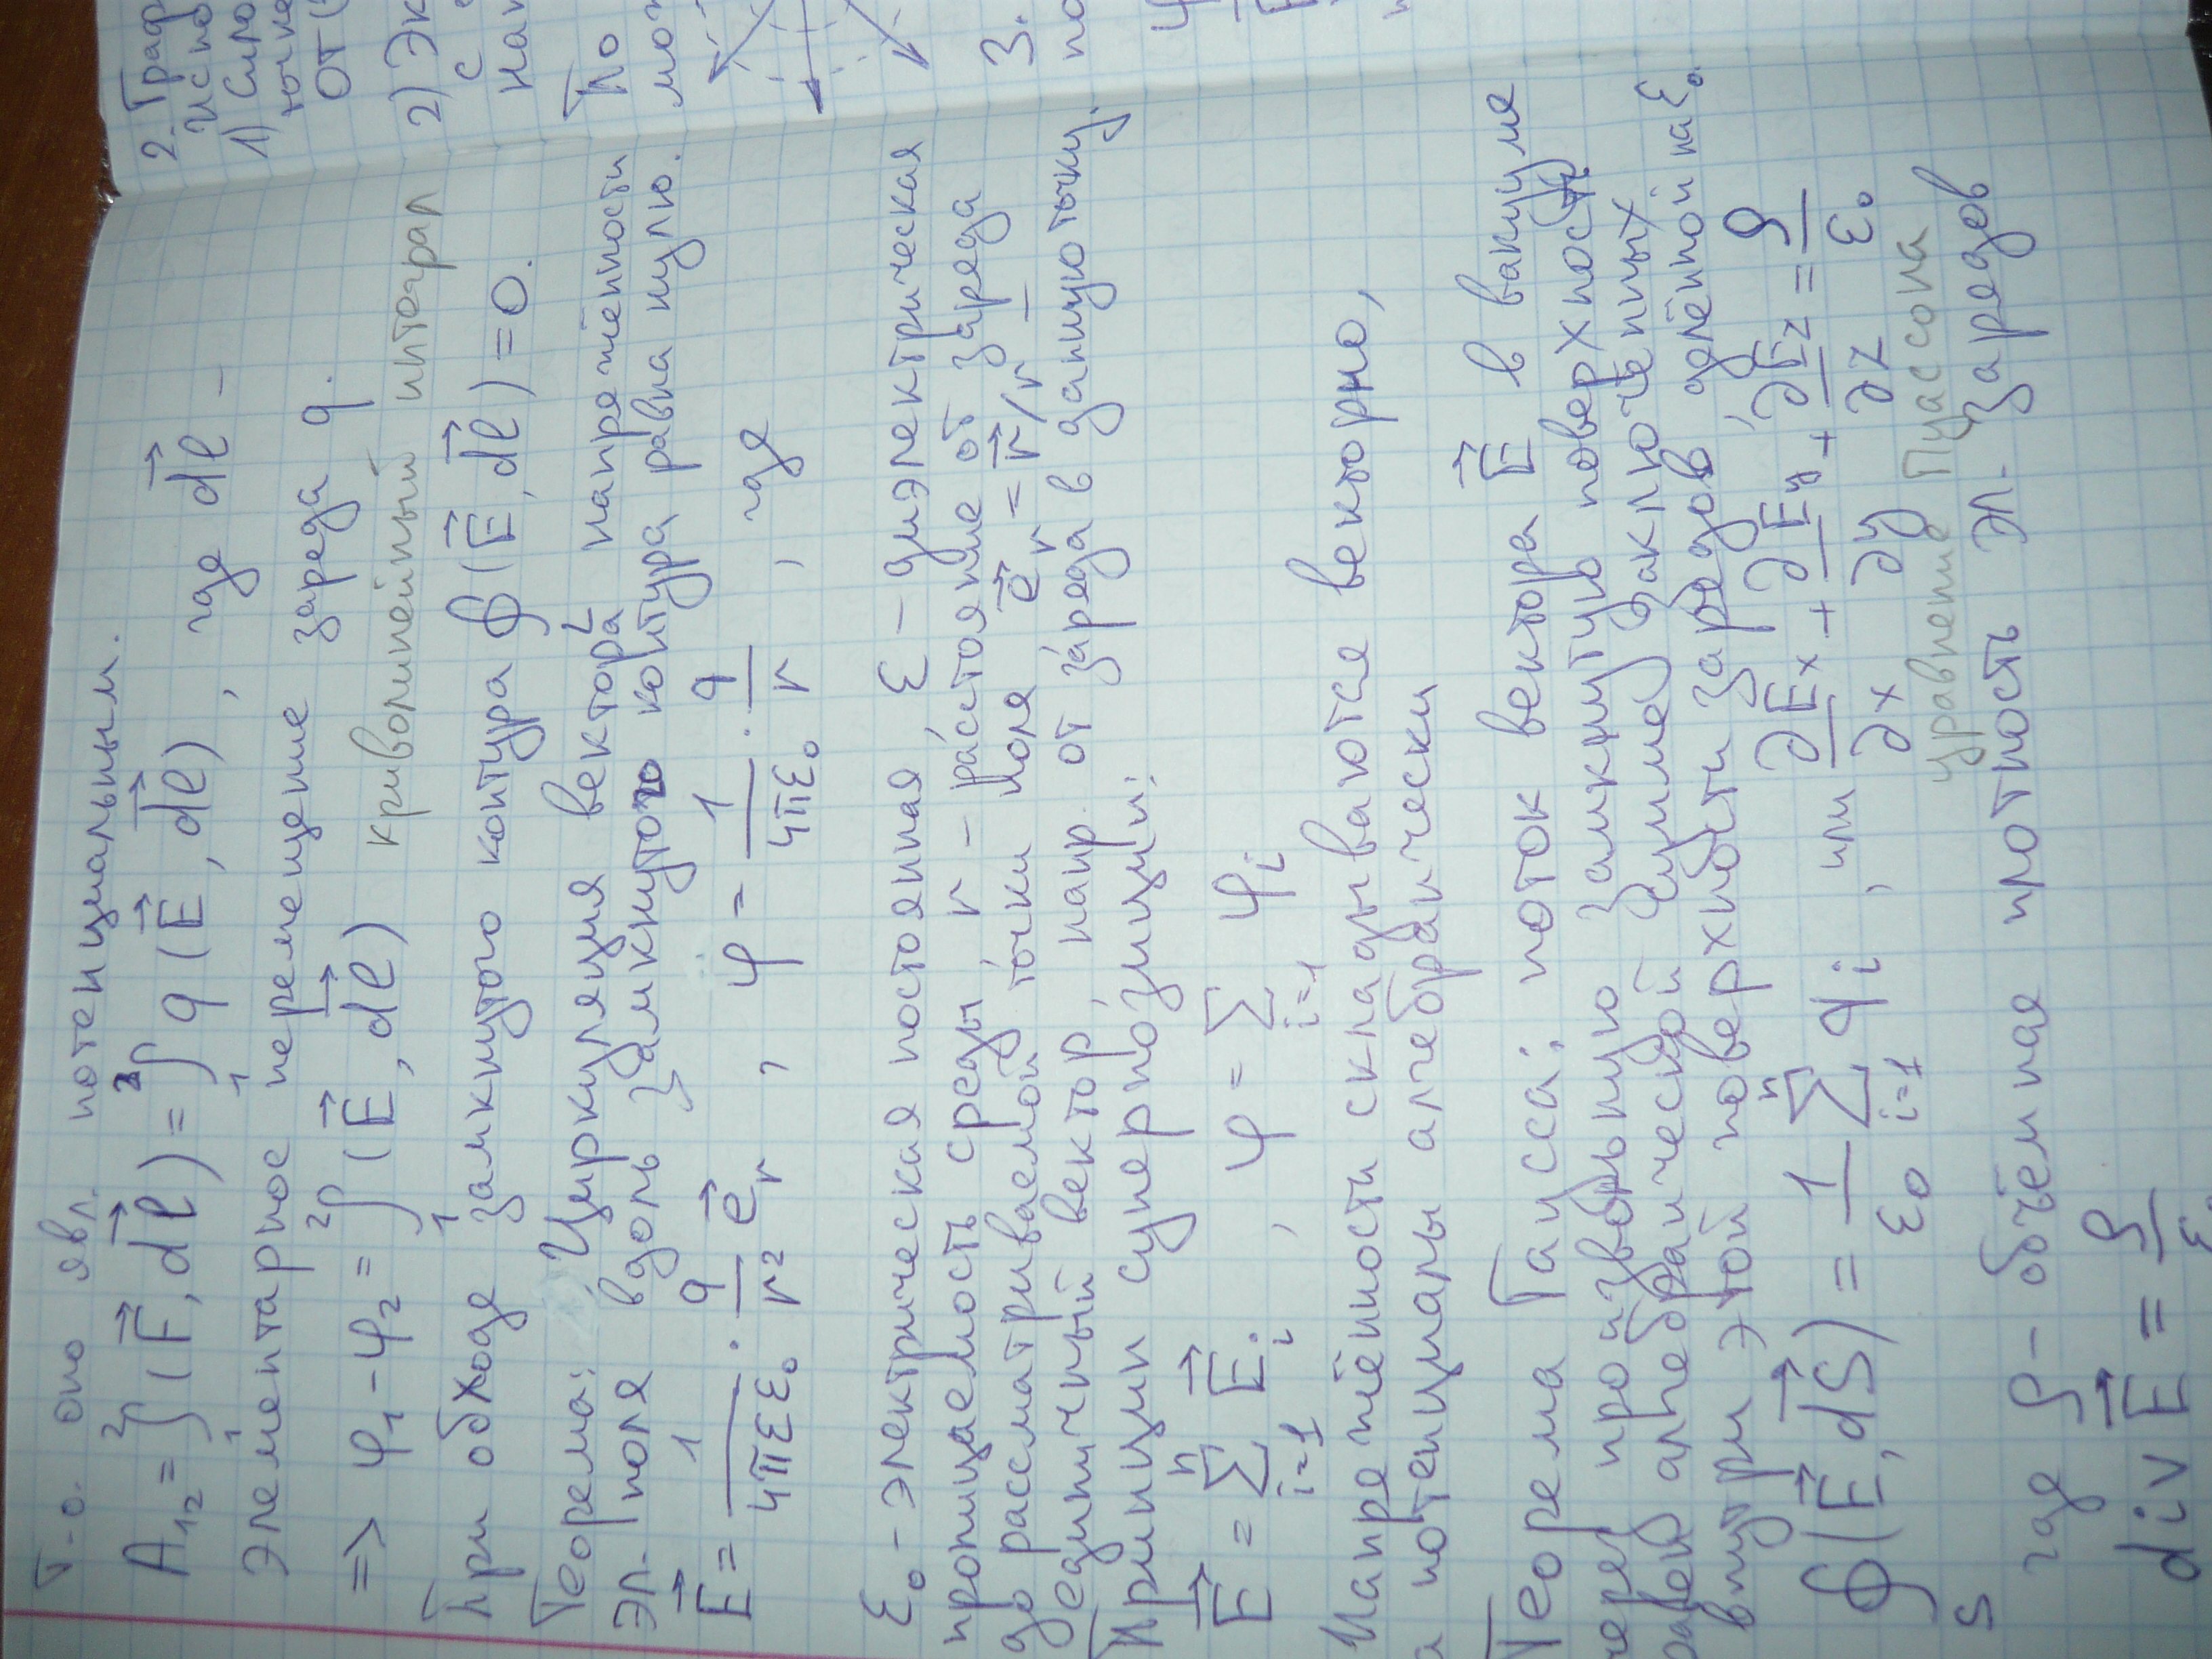 Т.о. оно явл. потенциальным.
A₁₂ = ₁∫² (F⃗, dl⃗) = ₁∫² q (E⃗, dl⃗), где dl⃗ –
элементарное перемещение заряда q.
=> φ₁ - φ₂ = ₁∫² (E⃗, dl⃗) криволинейный интеграл
При обходе замкнутого контура ∮_L (E⃗, dl⃗) = 0.
Теорема: Циркуляция вектора напряжённости
эл. поля вдоль замкнутого контура равна нулю.
E⃗ = 1/(4πεε₀) · q/r² e⃗ᵣ , φ = 1/(4πε₀) · q/r , где
ε₀ – электрическая постоянная, ε – диэлектрическая
проницаемость среды, r – расстояние от заряда
до рассматриваемой точки поля, e⃗ᵣ = r⃗/r –
единичный вектор, напр. от заряда в данную точку.
Принцип суперпозиции:
E⃗ = Σ_{i=1}^{n} E⃗ᵢ , φ = Σ_{i=1} φᵢ
Напряжённости складываются векторно,
а потенциалы алгебраически
Теорема Гаусса: поток вектора E⃗ в вакууме
через произвольную замкнутую поверхность
равен алгебраической сумме заключённых
внутри этой поверхности зарядов, делённой на ε₀.
∮_S (E⃗, dS⃗) = 1/ε₀ Σ_{i=1}^{n} qᵢ , или ∂Eₓ/∂x + ∂E_y/∂y + ∂E_z/∂z = ρ/ε₀
уравнение Пуассона
где ρ – объёмная плотность эл. зарядов
div E⃗ = ρ/ε₀
2. Граф
Испо
1) Сило
точке
от (
2) Эк
с
нап
По
мож
3.
по
φ